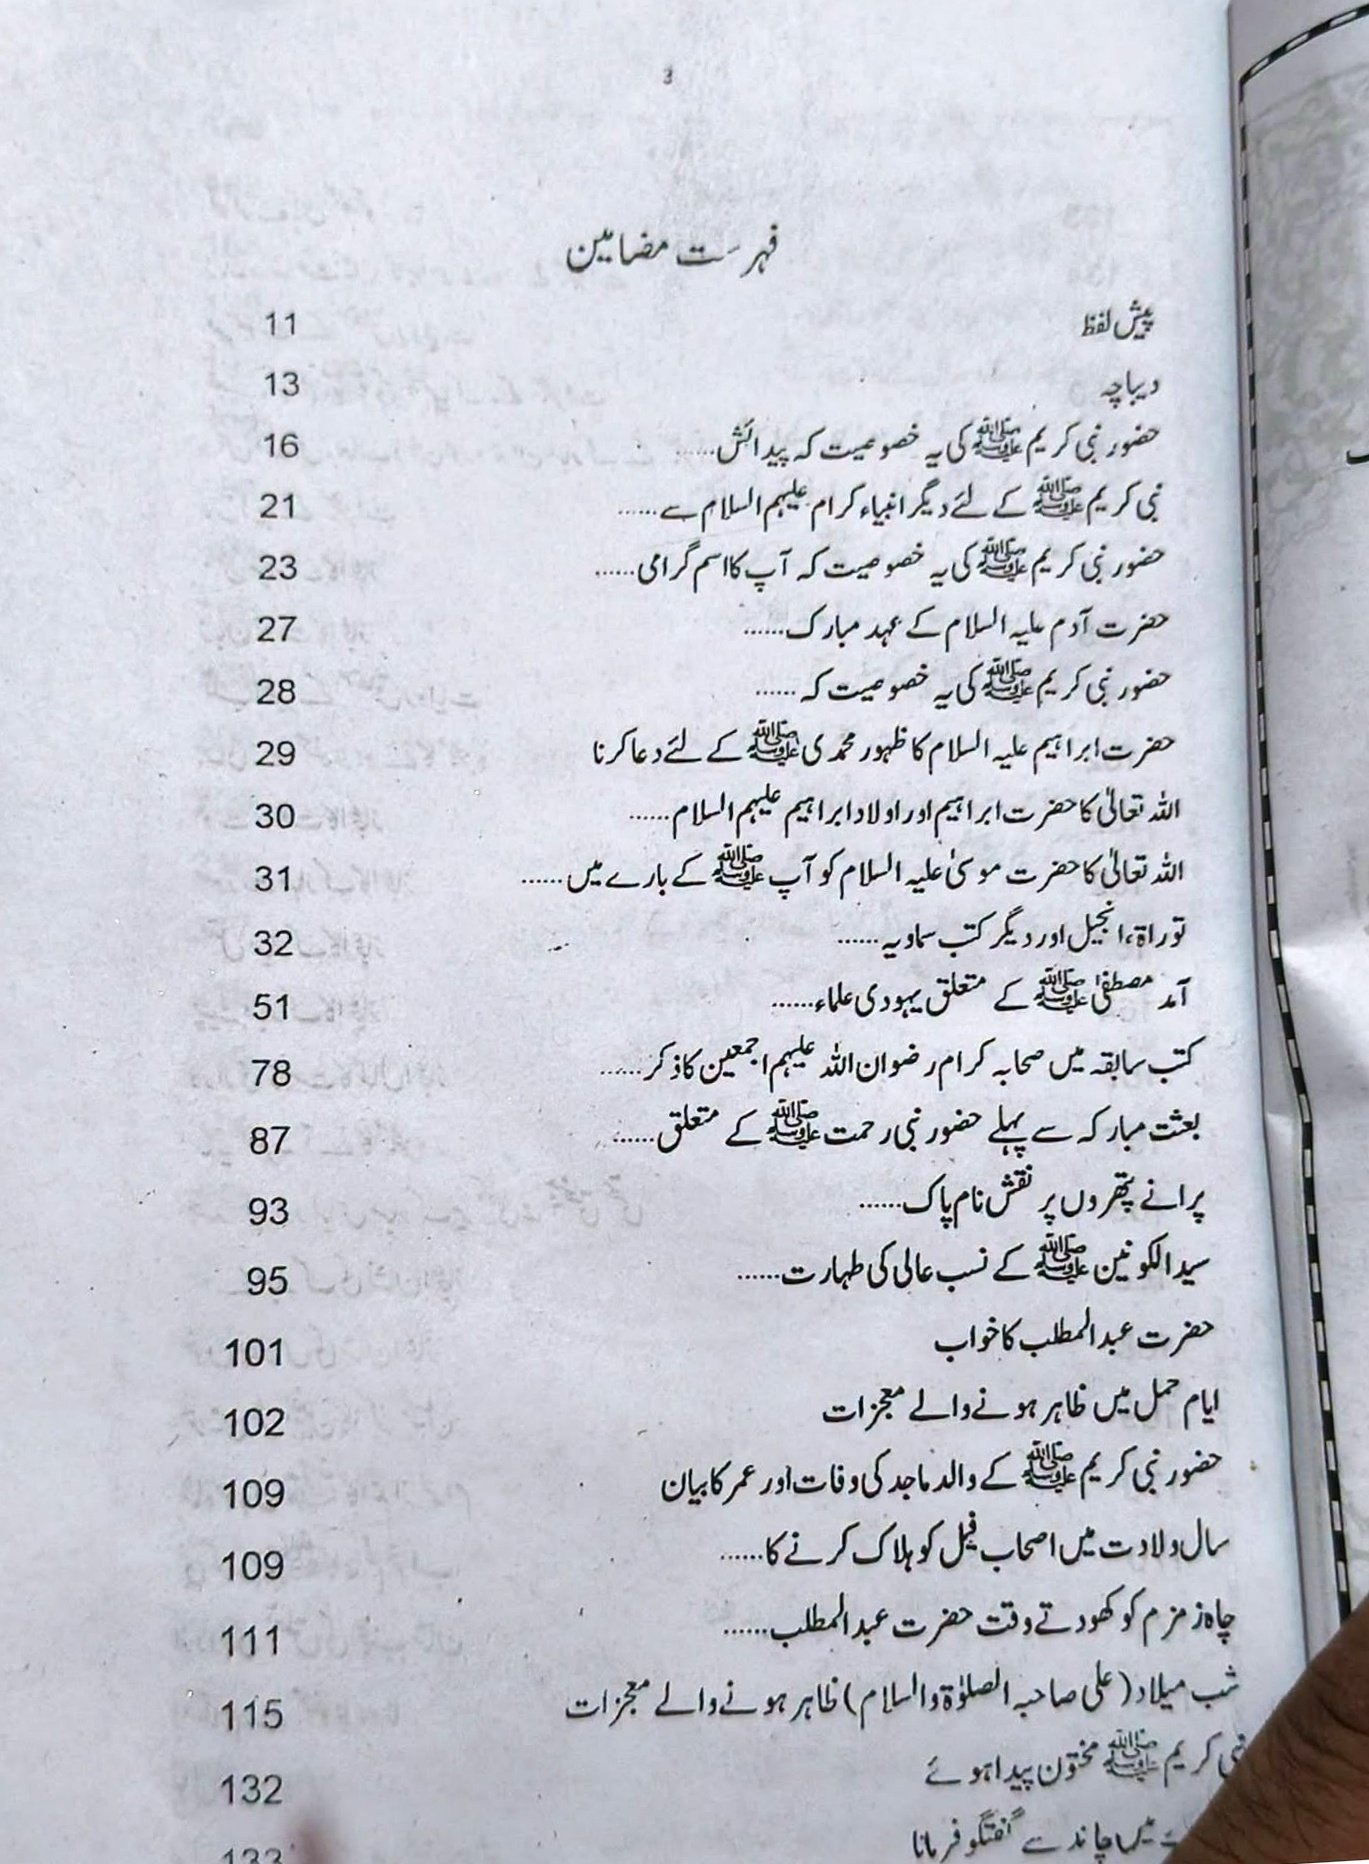 3
فہرست مضامین
پیش لفظ 11
دیباچہ 13
حضور نبی کریم ﷺ کی یہ خصوصیت کہ پیدائش...... 16
نبی کریم ﷺ کے لئے دیگر انبیاء کرام علیہم السلام سے...... 21
حضور نبی کریم ﷺ کی یہ خصوصیت کہ آپ کا اسم گرامی...... 23
حضرت آدم علیہ السلام کے عہد مبارک...... 27
حضور نبی کریم ﷺ کی یہ خصوصیت کہ...... 28
حضرت ابراہیم علیہ السلام کا ظہور محمدی ﷺ کے لئے دعا کرنا 29
اللہ تعالیٰ کا حضرت ابراہیم اور اولاد ابراہیم علیہم السلام...... 30
اللہ تعالیٰ کا حضرت موسیٰ علیہ السلام کو آپ ﷺ کے بارے میں...... 31
توراۃ، انجیل اور دیگر کتب سماویہ...... 32
آمد مصطفیٰ ﷺ کے متعلق یہودی علماء...... 51
کتب سابقہ میں صحابہ کرام رضوان اللہ علیہم اجمعین کا ذکر...... 78
بعثت مبارکہ سے پہلے حضور نبی رحمت ﷺ کے متعلق...... 87
پرانے پتھروں پر نقش نام پاک...... 93
سید الکونین ﷺ کے نسب عالی کی طہارت...... 95
حضرت عبدالمطلب کا خواب 101
ایام حمل میں ظاہر ہونے والے معجزات 102
حضور نبی کریم ﷺ کے والد ماجد کی وفات اور عمر کا بیان 109
سال ولادت میں اصحاب فیل کو ہلاک کرنے کا...... 109
چاہ زمزم کو کھودتے وقت حضرت عبدالمطلب...... 111
شب میلاد (علی صاحبہ الصلوٰۃ والسلام) ظاہر ہونے والے معجزات 115
نبی کریم ﷺ مختون پیدا ہوئے 132
میں چاند سے گفتگو فرمانا 133